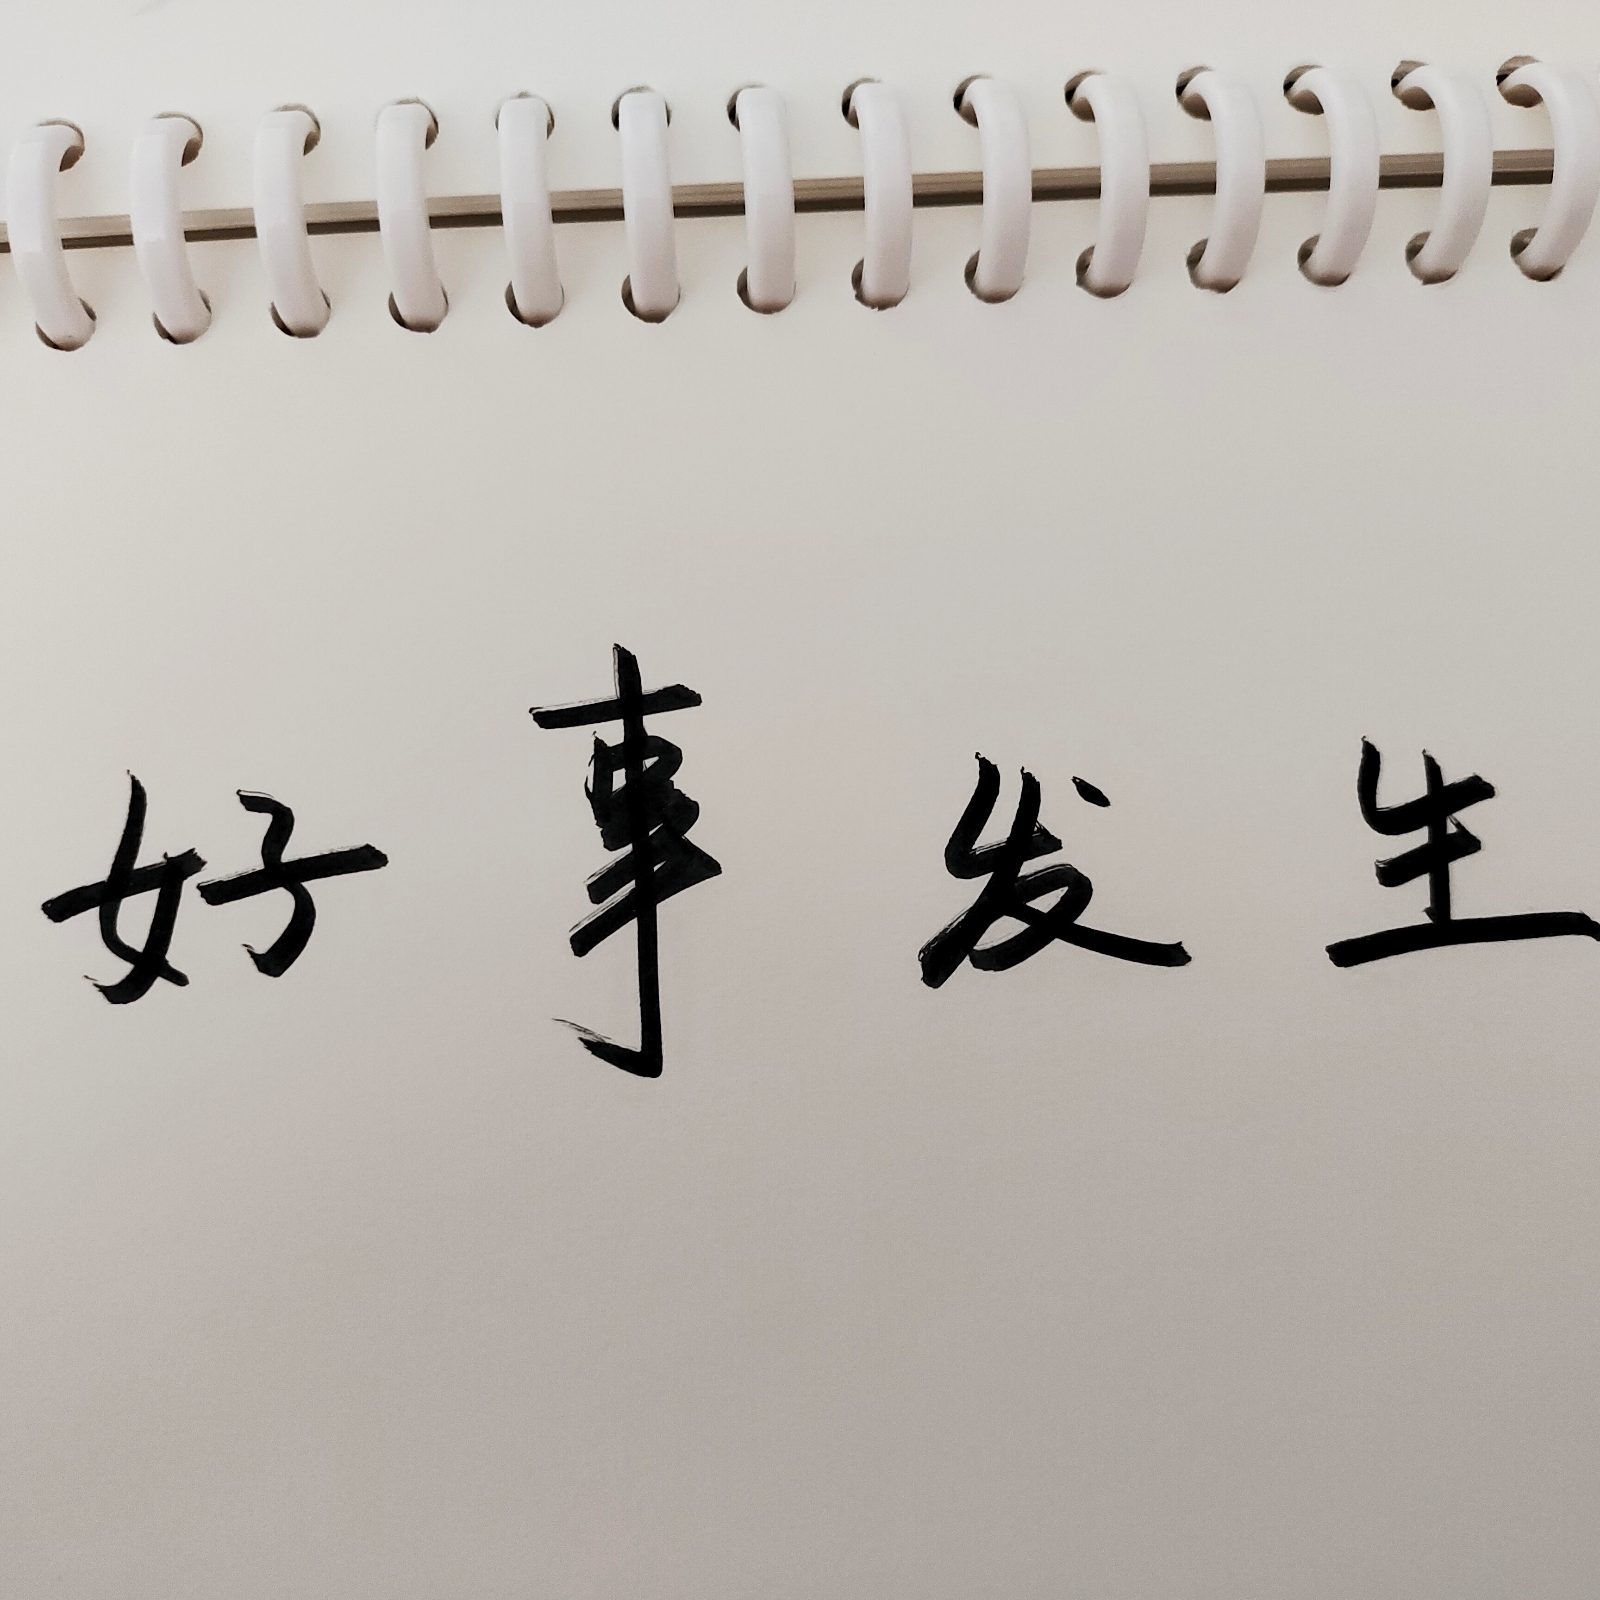 好事发生